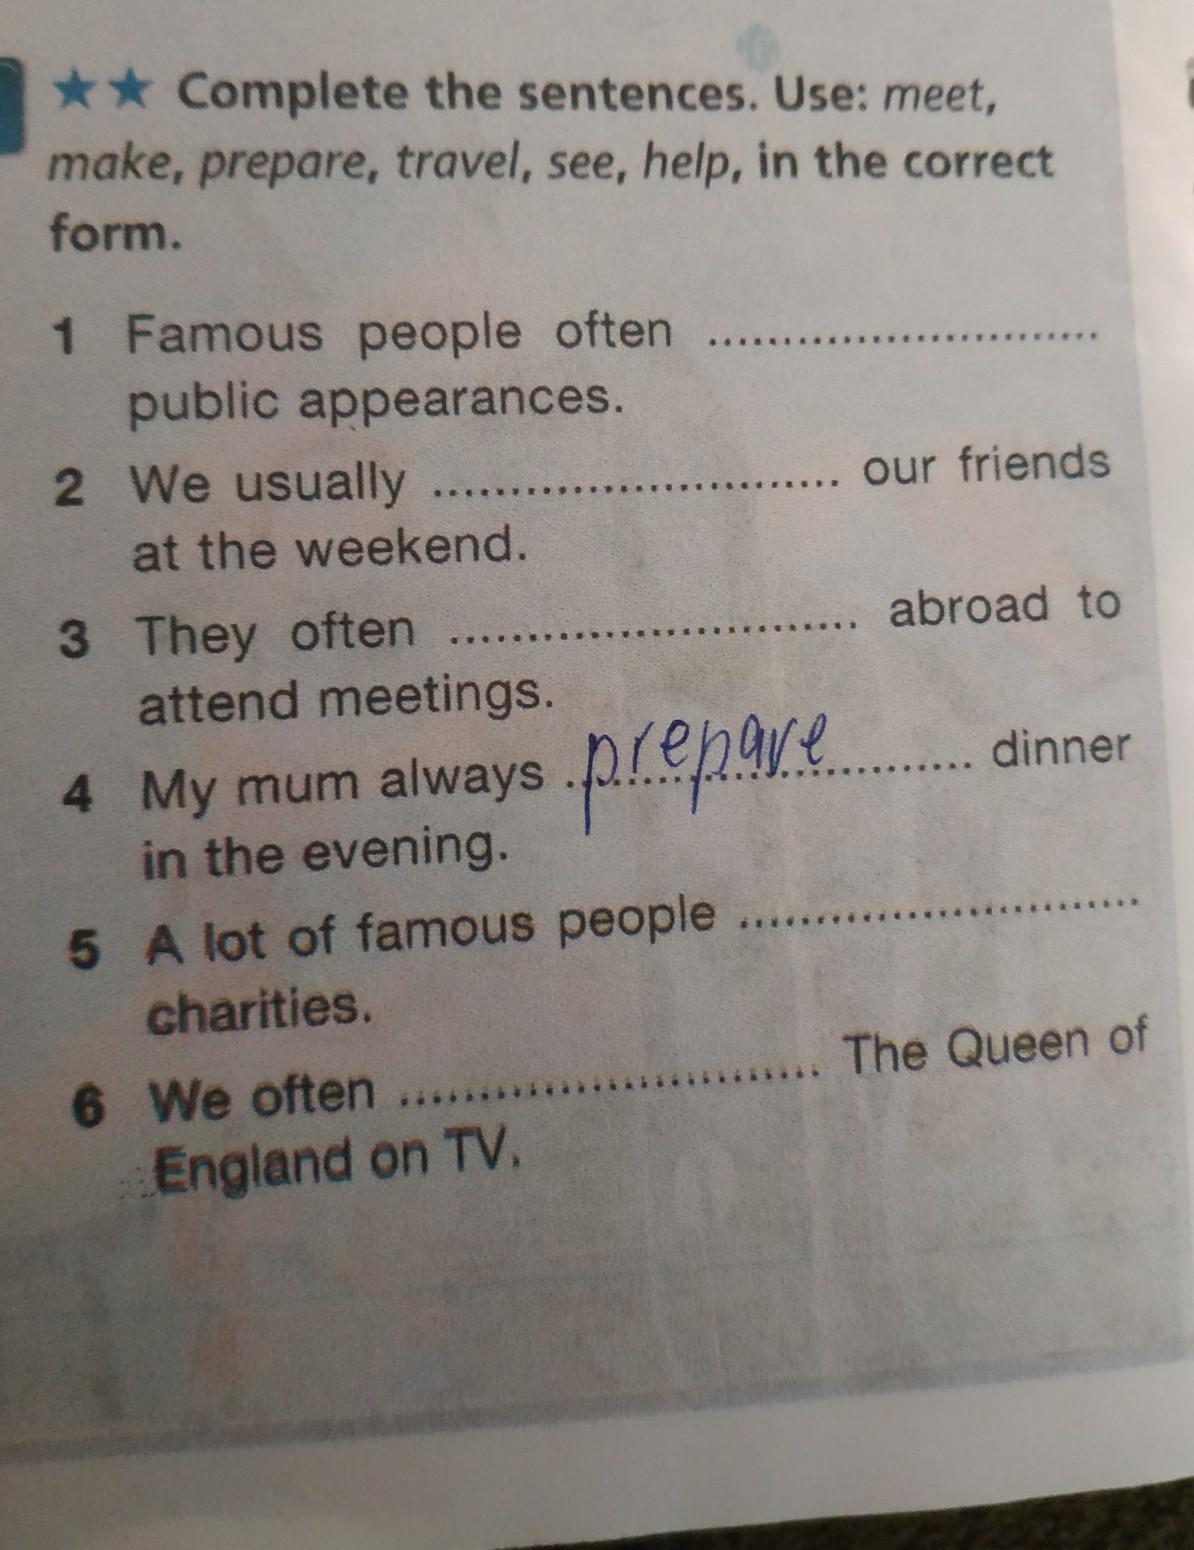 ★★ Complete the sentences. Use: meet,
make, prepare, travel, see, help, in the correct
form.
1 Famous people often ..............................
public appearances.
2 We usually .............................. our friends
at the weekend.
3 They often .............................. abroad to
attend meetings.
4 My mum always ..prepare.. dinner
in the evening.
5 A lot of famous people ..............................
charities.
6 We often .............................. The Queen of
England on TV.